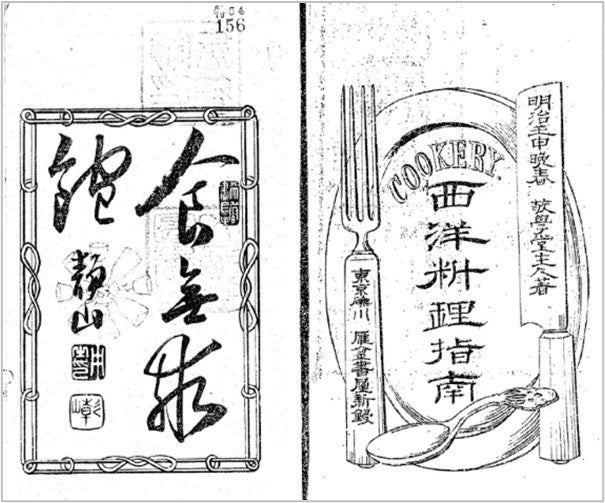 特54
156
食無求
飽
靜山
COOKERY.
明治壬申晩春 敬學堂主人著
西洋料理指南
東京 雁金書屋新鐫